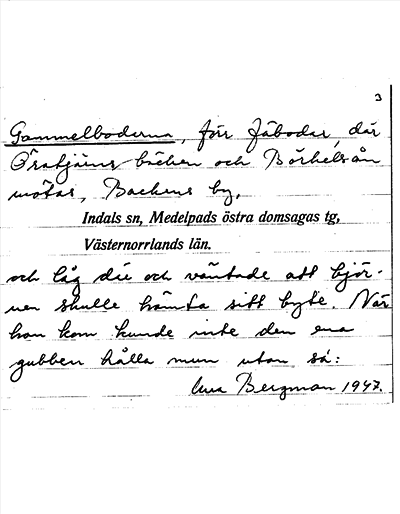 3
Gammelboderna, förr fäbodar, där
Öratjärnsbäcken och Börkelsån
mötas, Backens by,
Indals sn, Medelpads östra domsagas tg,
Västernorrlands län.
och låg där och väntade att björ-
nen skulle hämta sitt byte. När
han kom kunde inte den ena
gubben hålla mun utan sa:
Bergman 1947.